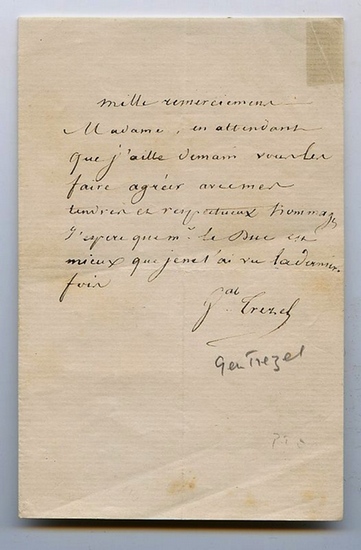 Mille remerciemens
Madame, en attendant
que j'aille demain vous les
faire agréer avec mes
tendres et respectueux hommages
J'espere que mr. le Duc est
mieux que je ne l'ai vu la derniere
fois
Gal Trezel
Gen Trezel